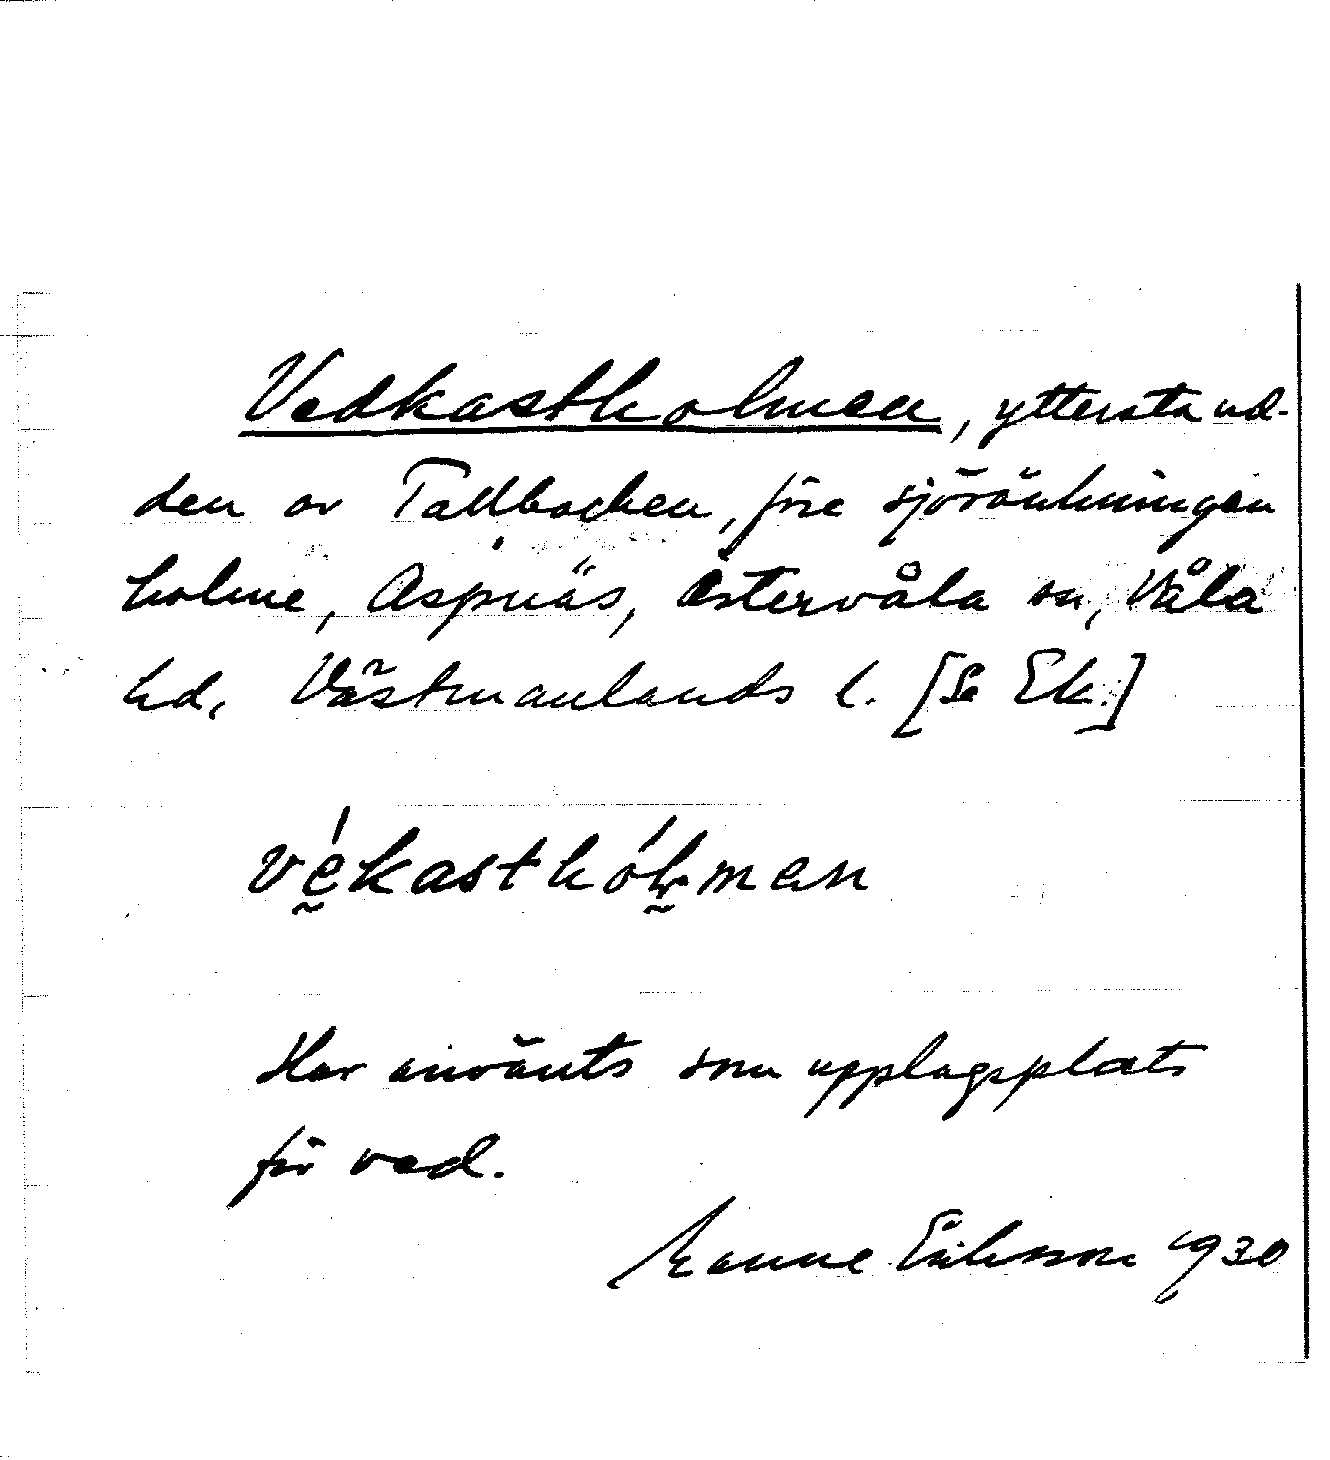 Vedkastholmen, yttersta ud-
den av Tallbacken, före sjösänkningen
holme, Aspnäs, Östervåla sn, Våla
hd, Västmanlands l. [Se Ek.]
vékasthólmen
Har använts som upplagsplats
för ved.
Manne Eriksson 1930